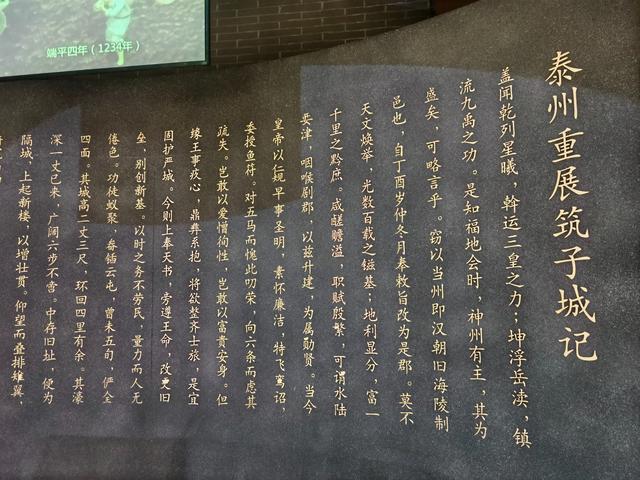 端平四年（1234年）
泰州重展筑子城记
盖闻乾列星曦，斡运三皇之力；坤浮岳渎，镇
流九禹之功。是知福地会时，神州有主，其为
盛矣，可略言乎。窃以当州即汉朝旧海陵制
邑也，自丁酉岁仲冬月奉敕旨改为是郡。莫不
天文焕举，光数百载之镃基；地利显分，富一
千里之黔庶。咸鹾赡溢，职赋殷繁，可谓水陆
要津，咽喉剧郡，以兹升建，为属勋贤。当今
皇帝以仁规早事圣明，素怀廉洁，特飞鸾诏，
委授鱼符。对五马而愧此叨荣，向六条而虑其
疏失。岂敢以爱憎徇性，岂敢以富贵安身。但
缘王事疚心，鼎彝系抱，将欲整齐士旅，是宜
固护严城。今则上奉天书，旁遵王命，改更旧
垒，别创新基。以时之务不劳民，量力而人无
倦色。功徒蚁聚，畚锸云屯，曾未五旬，俨全
四面。其城高二丈三尺，环回四里有余。其濠
深一丈已来，广阔六步不啻。中存旧址，便为
隔城，上起新楼，以增壮贯。仰望而叠排雉翼，